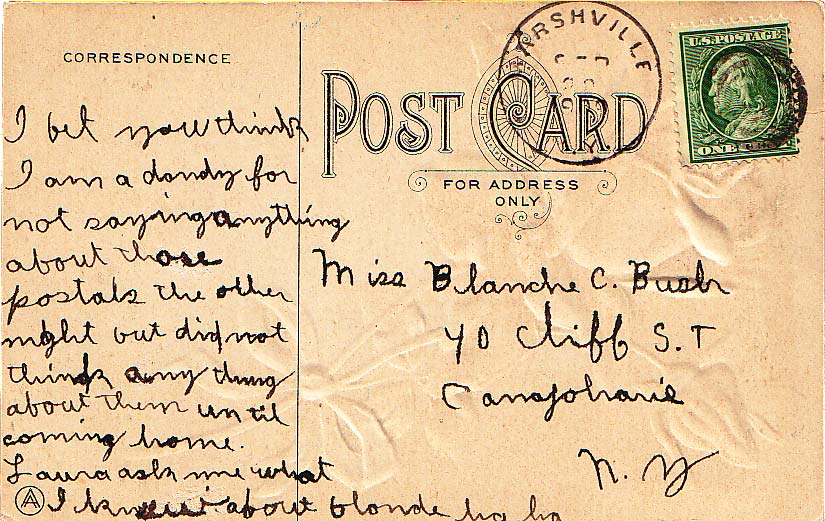 CORRESPONDENCE
I bet you think
I am a dandy for
not saying anything
about those
postals the other
night but did not
think any thing
about them until
coming home.
Laura ask me what
I knew about blonde ha ha
POST CARD
FOR ADDRESS
ONLY
ARSHVILLE
U.S. POSTAGE
ONE CENT
Miss Blanche C. Bush
40 Cliff S.T
Canajoharie
N. Y
A